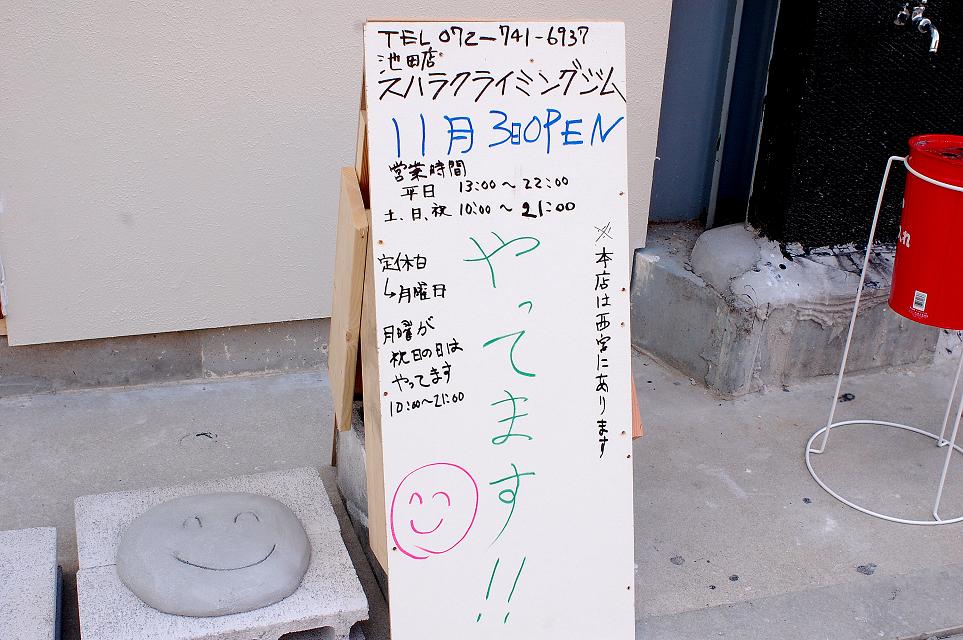 TEL 072-741-6937
池田店
スハラクライミングジム
11月3日OPEN
営業時間
平日 13:00～22:00
土、日、祝 10:00～21:00
※本店は西宮にあります
定休日
↳月曜日
月曜が
祝日の日は
やってます
10:00～21:00
やってます!!